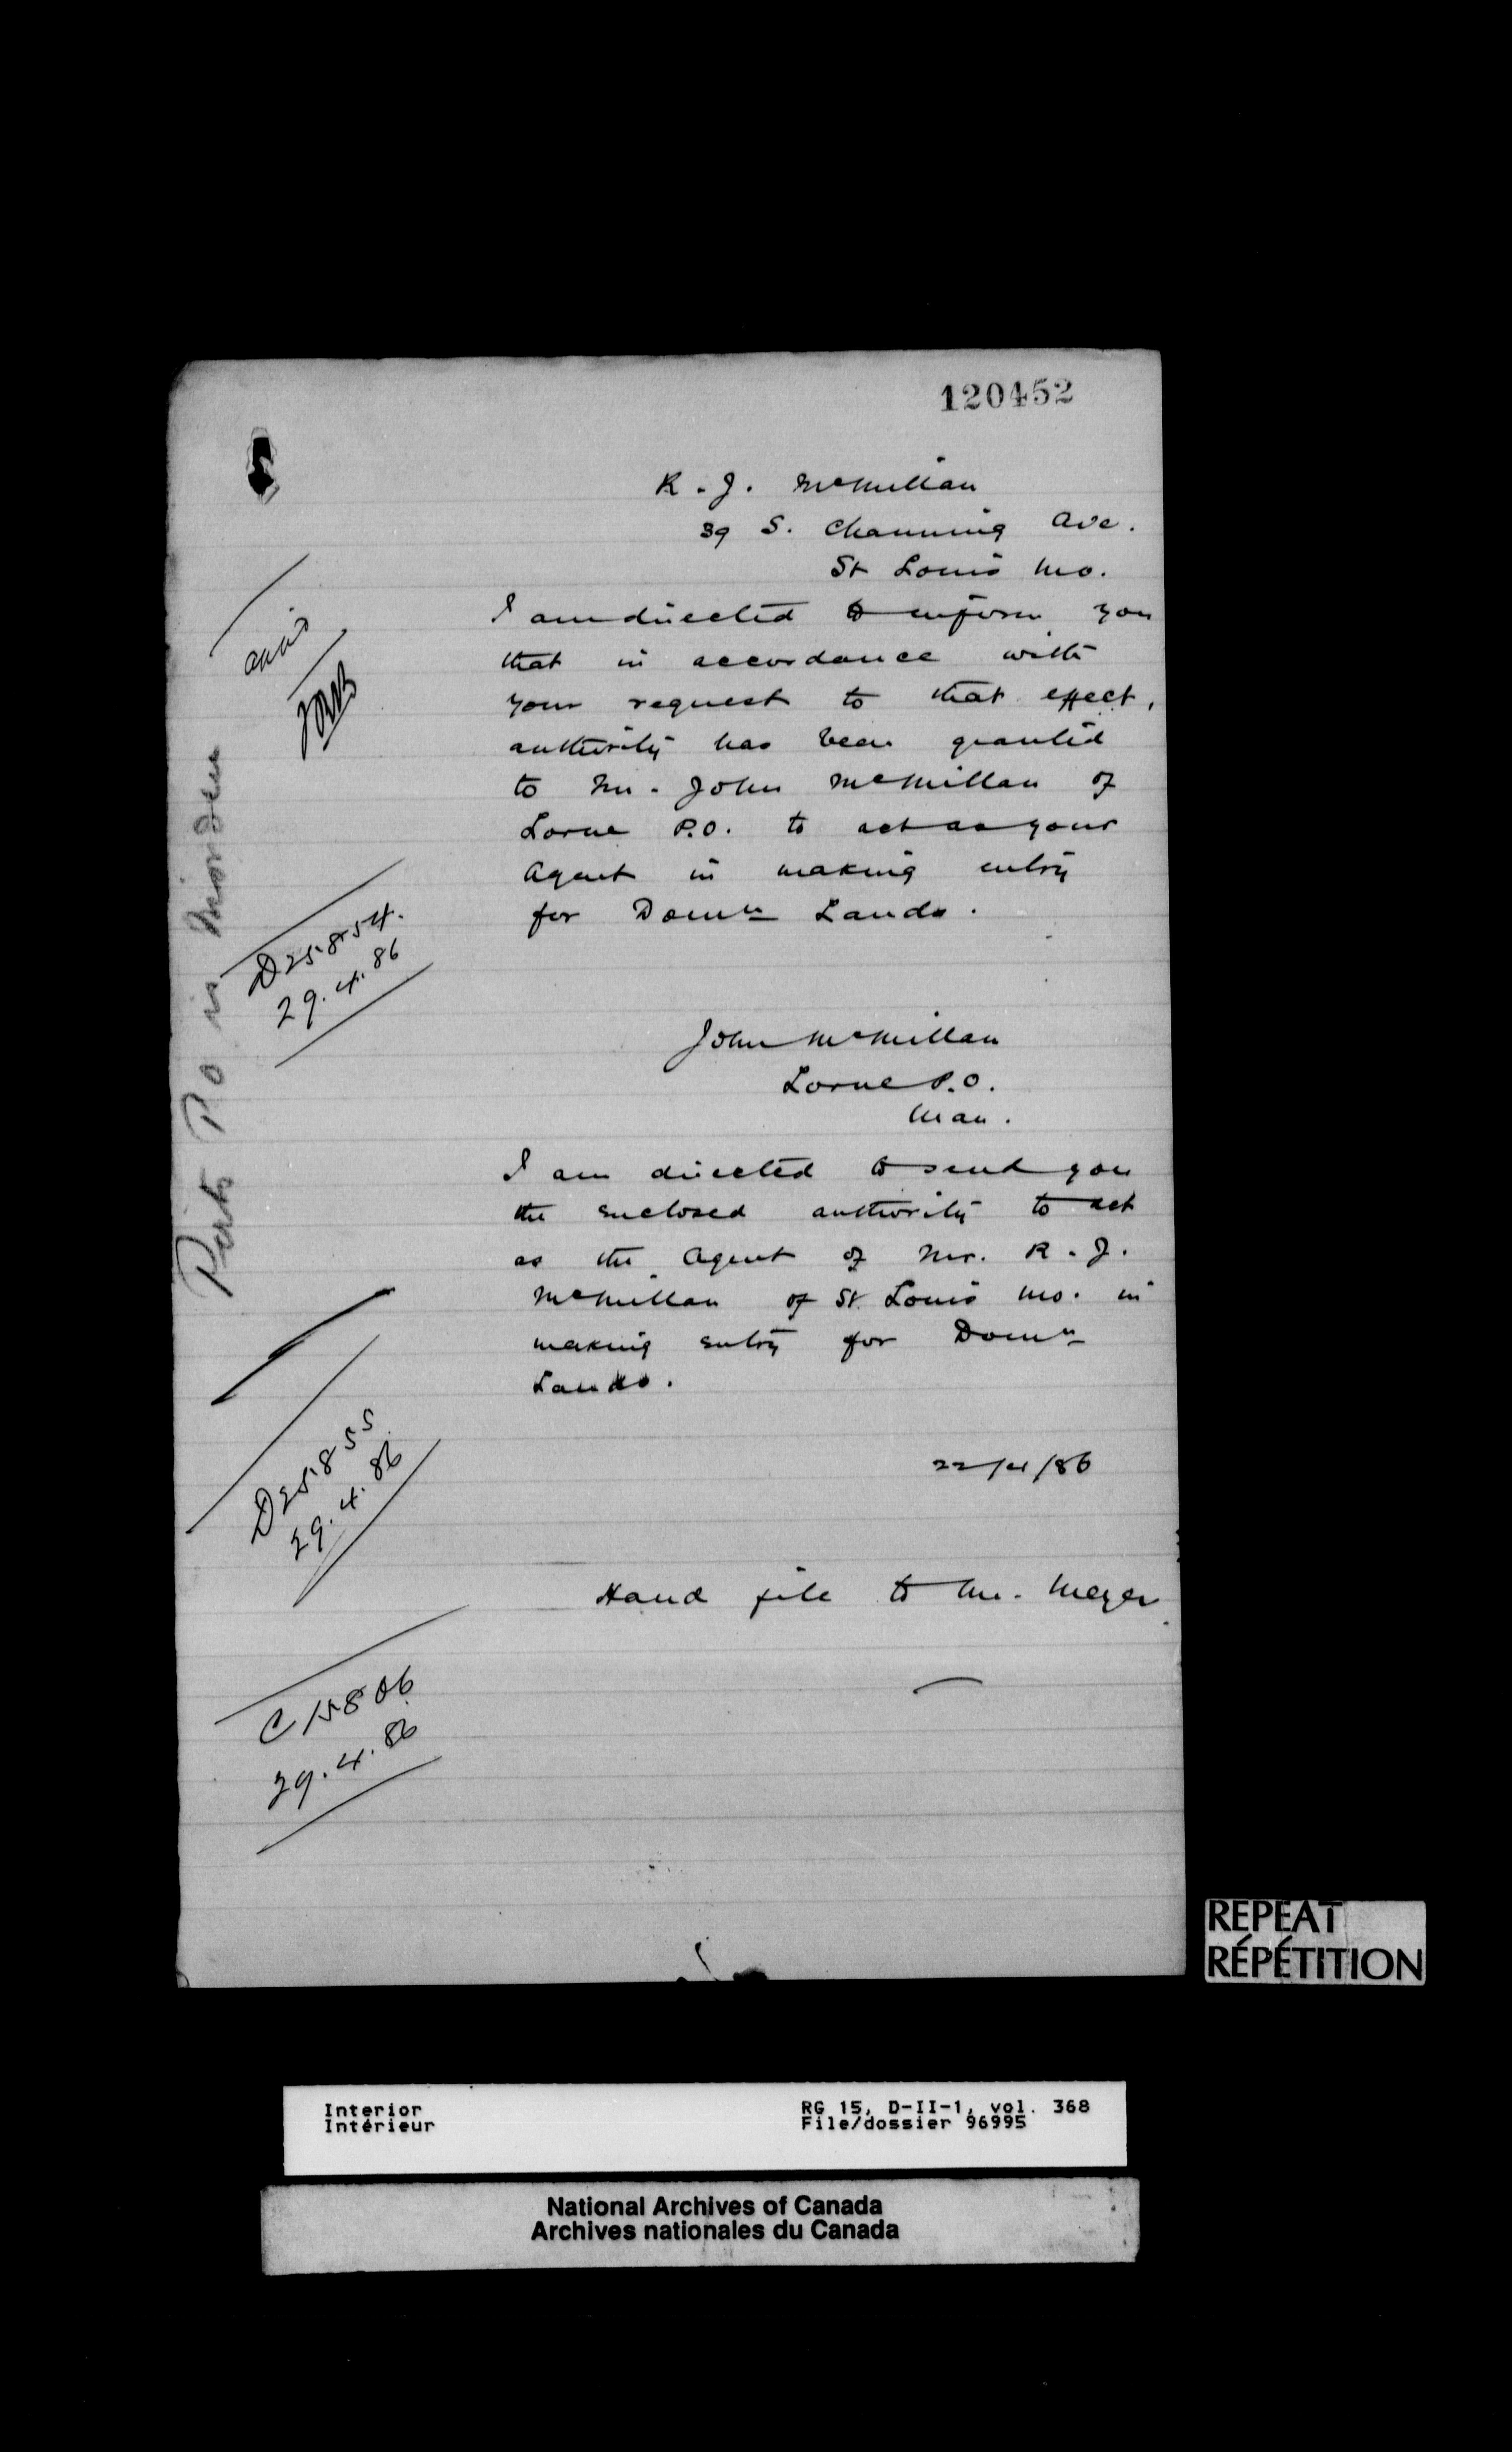 120452
R. J. McMillan
39 S. Channing Ave.
St Louis Mo.
I am directed to inform you
that in accordance with
your request to that effect,
authority has been granted
to Mr. John McMillan of
Lorne P.O. to act as your
Agent in making entry
for Domn Lands.
D 25854.
29.4.86
John McMillan
Lorne P.O.
Man.
I am directed to send you
the enclosed authority to act
as the Agent of Mr. R. J.
McMillan of St. Louis Mo. in
making entry for Domn
Lands.
D 25855
29.4.86
22/4/86
Hand file to Mr. Meyer
C 15806
29.4.86
P O in
REPEAT
RÉPÉTITION
Interior
Intérieur
RG 15, D-II-1, vol. 368
File/dossier 96995
National Archives of Canada
Archives nationales du Canada